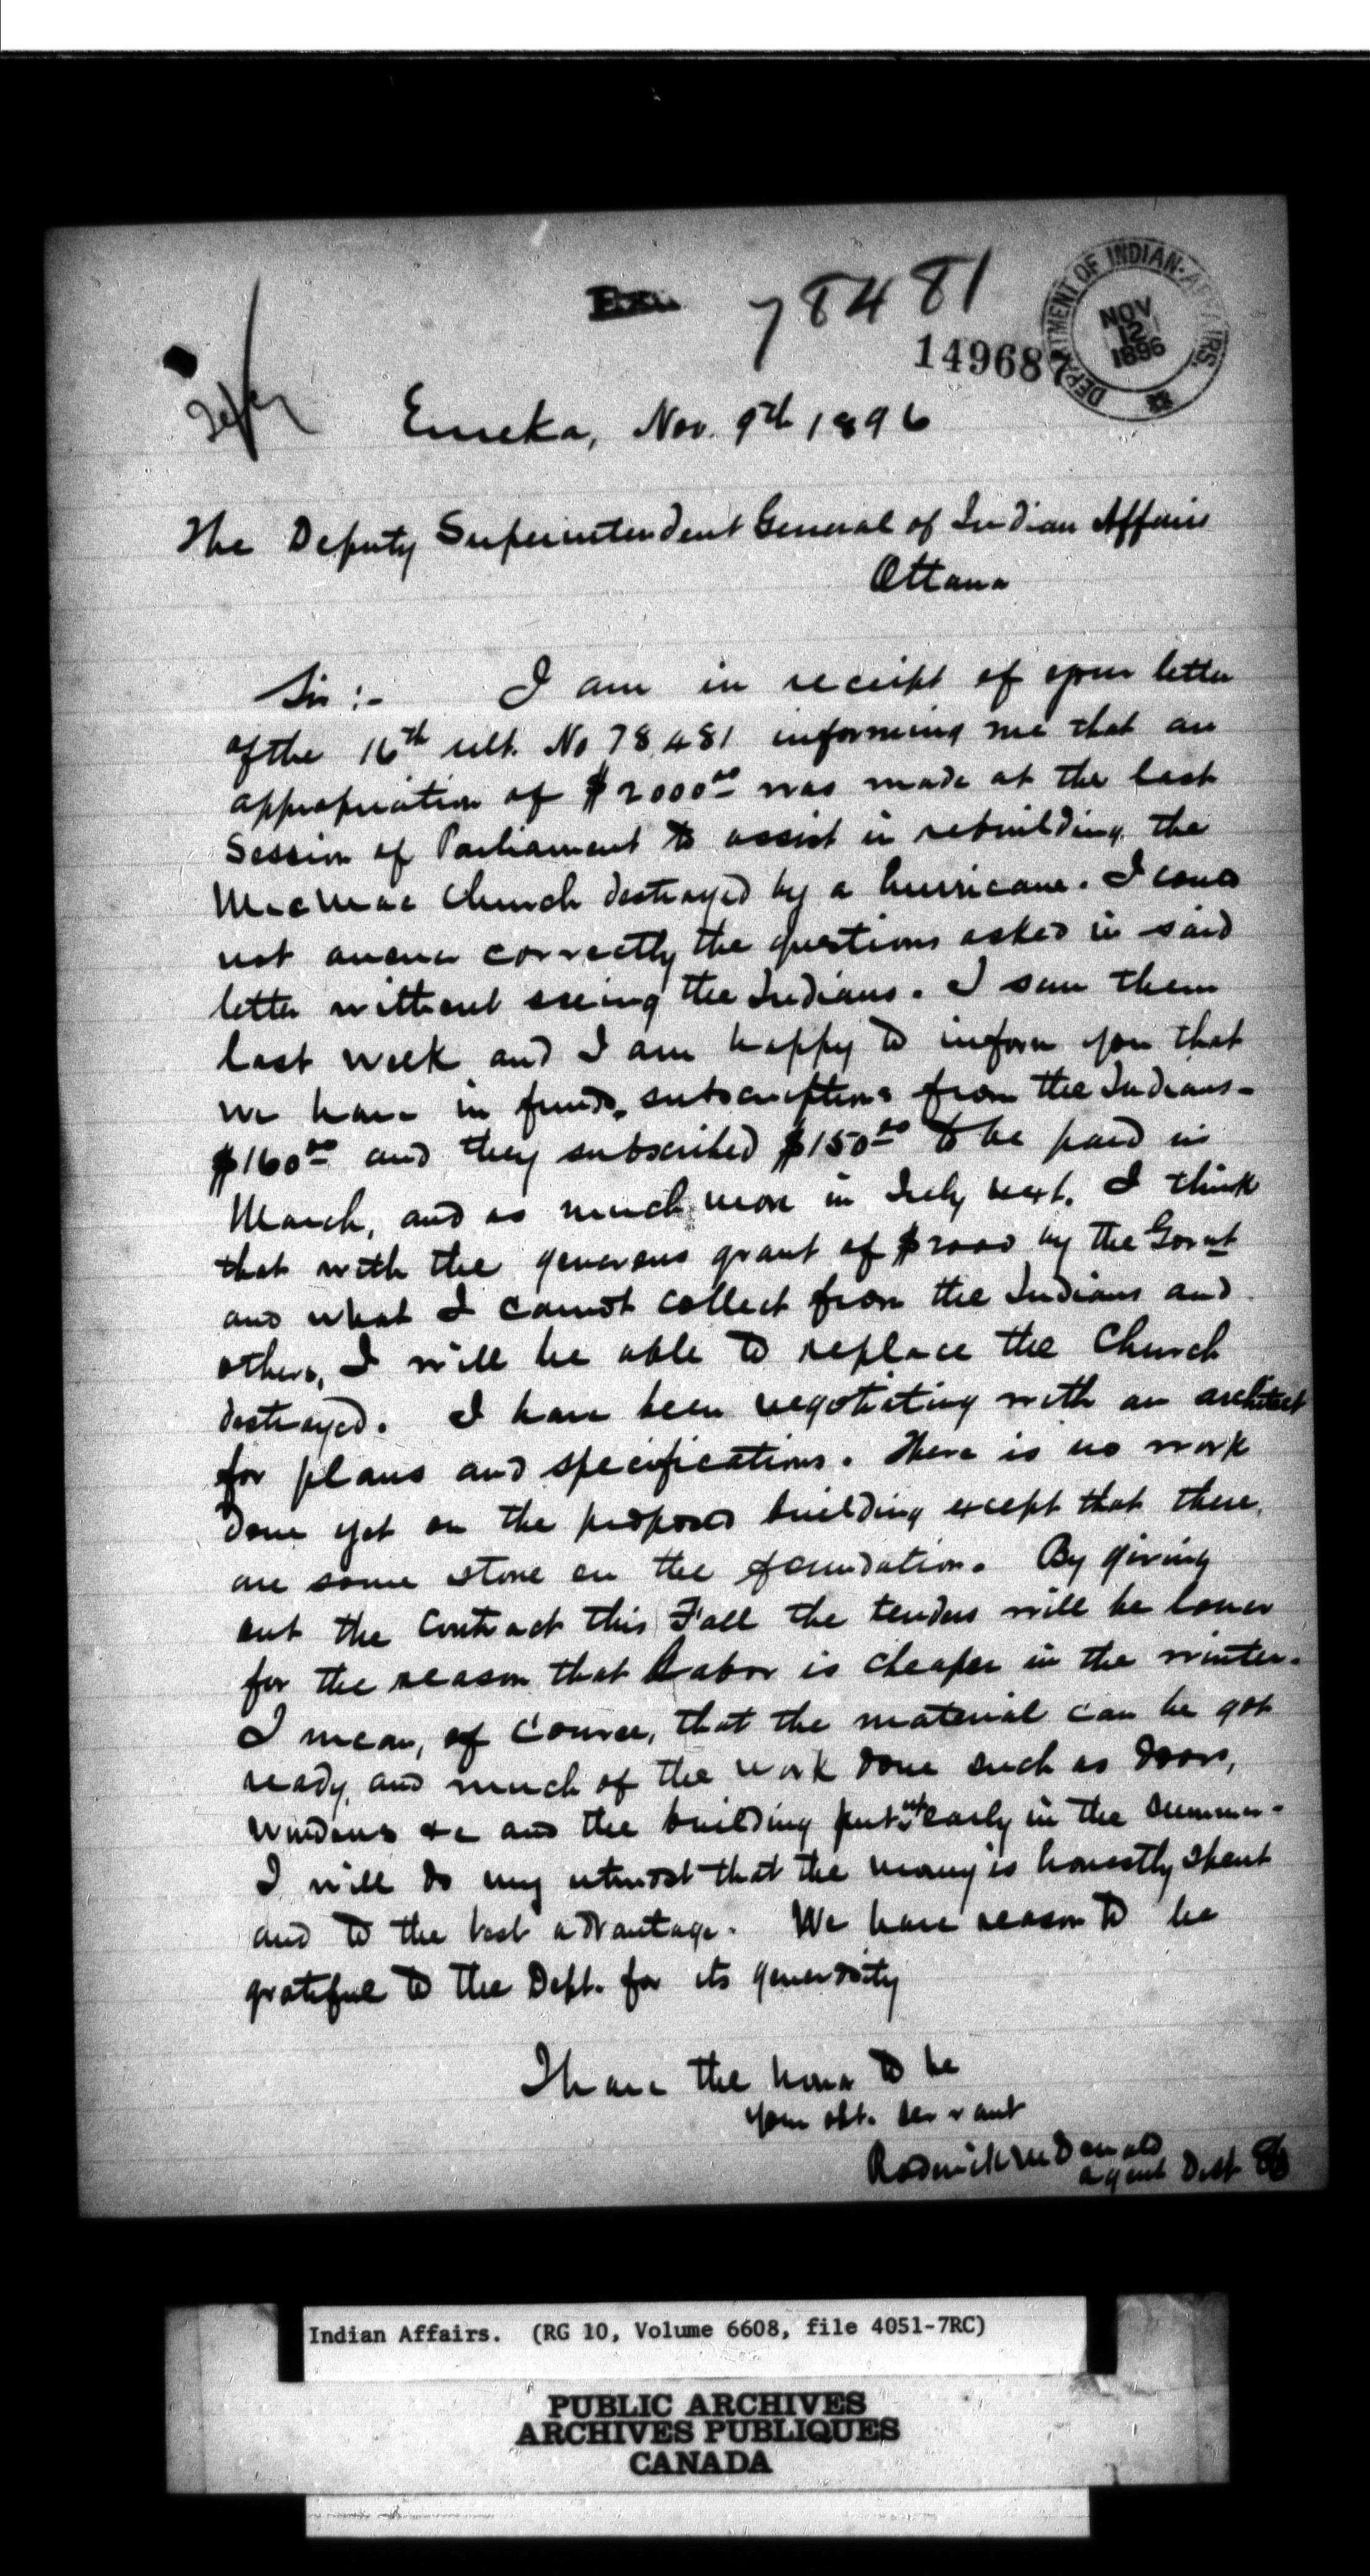 78481
149687
DEPARTMENT OF INDIAN AFFAIRS.
NOV
12
1896
Eureka, Nov. 9th 1896
The Deputy Superintendent General of Indian Affairs
Ottawa
Sir:- I am in receipt of your letter
of the 16th ult. No 78,481 informing me that an
appropriation of $2000.00 was made at the last
Session of Parliament to assist in rebuilding the
MicMac Church destroyed by a hurricane. I could
not answer correctly the questions asked in said
letter without seeing the Indians. I saw them
last week and I am happy to inform you that
we have in funds, subscriptions from the Indians-
$160.00 and they subscribed $150.00 to be paid in
March, and as much more in July next. I think
that with the generous grant of $2000 by the Govnt
and what I cannot collect from the Indians and
others, I will be able to replace the Church
destroyed. I have been negotiating with an architect
for plans and specifications. There is no work
done yet on the proposed building except that there
are some stone on the foundation. By giving
out the Contract this Fall the tenders will be lower
for the reason that Labor is cheaper in the winter.
I mean, of course, that the material can be got
ready, and much of the work done such as doors,
windows &c and the building put up early in the summer.
I will do my utmost that the money is honestly spent
and to the best advantage. We have reason to be
grateful to the Dept. for its generosity
I have the honor to be
your obt. servant
Roderick McDonald
agent Dist 8
Indian Affairs. (RG 10, Volume 6608, file 4051-7RC)
PUBLIC ARCHIVES
ARCHIVES PUBLIQUES
CANADA